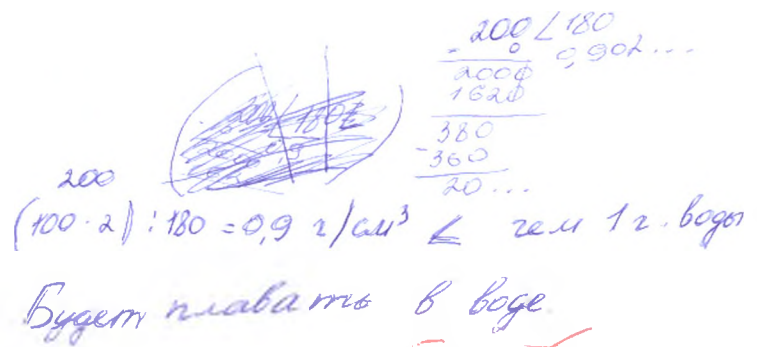 200 ∠ 180
- 0 0,902...
2000
1620
380
- 360
20...
200
(100·2) : 180 = 0,9 г/см³ < чем 1 г. воды
Будет плавать в воде